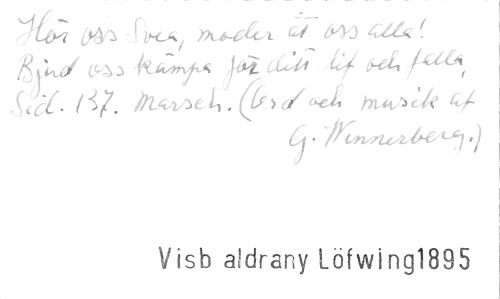 Hör oss Svea, moder åt oss alla!
Bjud oss kämpa för ditt lif och falla,
Sid. 137. Marsch. (Ord och musik af
G. Wennerberg.)
Visb aldrany Löfwing1895